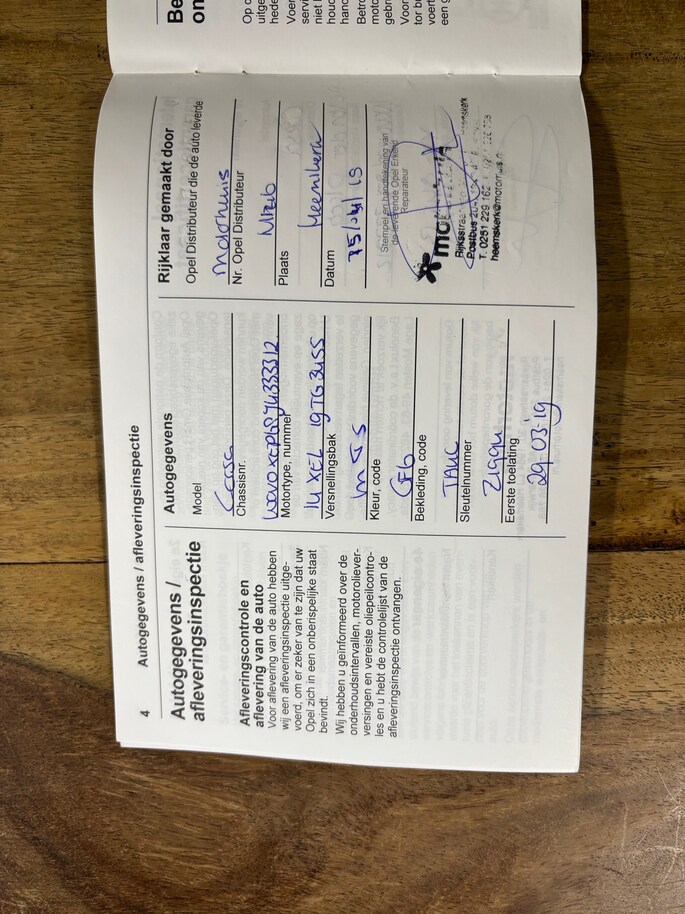 4
Autogegevens / afleveringsinspectie
Autogegevens /
afleveringsinspectie
Afleveringscontrole en
aflevering van de auto
Voor aflevering van de auto hebben
wij een afleveringsinspectie uitge-
voerd, om er zeker van te zijn dat uw
Opel zich in een onberispelijke staat
bevindt.
Wij hebben u geïnformeerd over de
onderhoudsintervallen, motoroliever-
versingen en vereiste oliepeilcontro-
les en u hebt de controlelijst van de
afleveringsinspectie ontvangen.
Autogegevens
Model
Corsa
Chassisnr.
Motortype, nummer
14XEL 19TG3455
Versnellingsbak
Kleur, code
Bekleding, code
Sleutelnummer
Eerste toelating
29.03.19
Rijklaar gemaakt door
Opel Distributeur die de auto leverde
Motorhuis
Nr. Opel Distributeur
Plaats
Heemskerk
Datum
Stempel en handtekening van
de leverende Opel Erkend
Reparateur
Rijksstraa
Postbus
T. 0251 229 162
heemskerk@motorhuis.n
Be
on
Op
uitge
hede
Voer
servi
niet
houd
hand
Betro
moto
gebr
Voor
tor be
voert
een